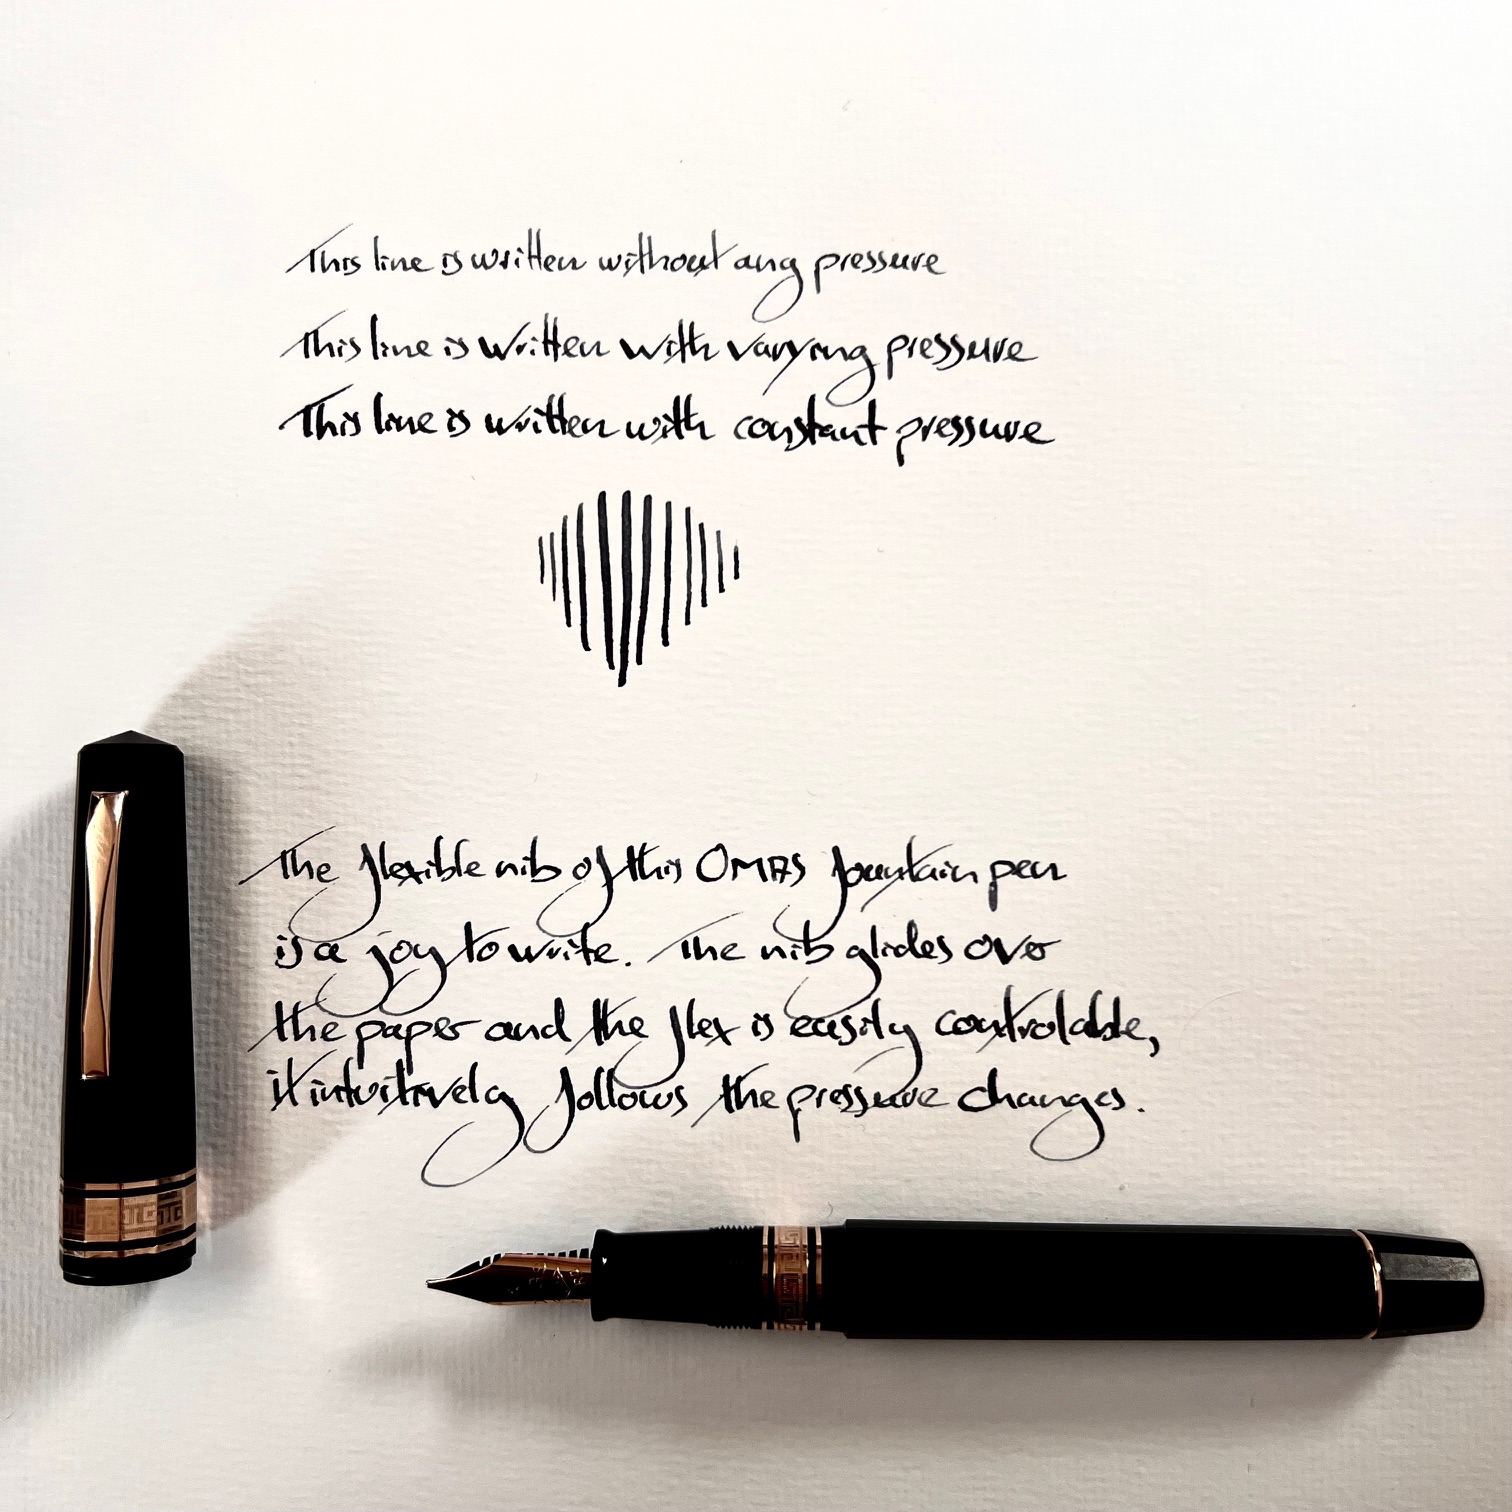 This line is written without any pressure
This line is written with varying pressure
This line is written with constant pressure
The flexible nib of this OMAS fountain pen
is a joy to write. The nib glides over
the paper and the flex is easily controlable,
it intuitively follows the pressure changes.